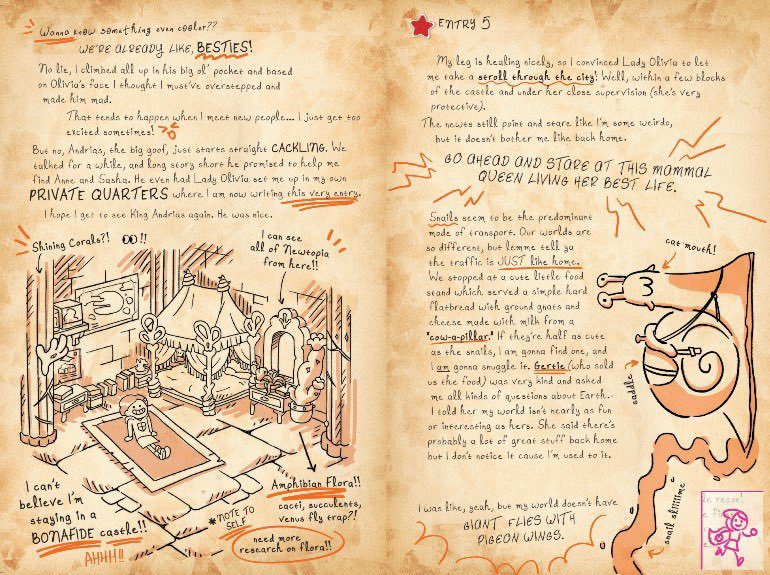 Wanna know something even cooler??
WE'RE ALREADY LIKE, BESTIES!
No lie, I climbed all up in his big ol' pocket and based
on Olivia's face I thought I must've overstepped and
made him mad.
That tends to happen when I meet new people... I just get too
excited sometimes!
But no, Andrias, the big goof, just starts straight CACKLING. We
talked for a while, and long story short he promised to help me
find Anne and Sasha. He even had Lady Olivia set me up in my own
PRIVATE QUARTERS where I am now writing this very entry.
I hope I get to see King Andrias again. He was nice.
Shining Corals?! !!
I can see
all of Newtopia
from here!!
I can't
believe I'm
staying in a
BONAFIDE castle!!
AHHH!!
*NOTE TO
SELF
Amphibian Flora!!
cacti, succulents,
venus fly trap?!
need more
research on flora!!
ENTRY 5
My leg is healing nicely, so I convinced Lady Olivia to let
me take a stroll through the city! Well, within a few blocks
of the castle and under her close supervision (she's very
protective).
The newts still point and stare like I'm some weirdo,
but it doesn't bother me like back home.
GO AHEAD AND STARE AT THIS MAMMAL
QUEEN LIVING HER BEST LIFE.
Snails seem to be the predominant
mode of transport. Our worlds are
so different, but lemme tell ya
the traffic is JUST like home.
We stopped at a cute little food
stand which served a simple hard
flatbread with ground gnats and
cheese made with milk from a
"cow-a-pillar." If they're half as cute
as the snails, I am gonna find one, and
I am gonna snuggle it. Gertie (who sold
us the food) was very kind and asked
me all kinds of questions about Earth.
I told her my world isn't nearly as fun
or interesting as hers. She said there's
probably a lot of great stuff back home
but I don't notice it cause I'm used to it.
I was like, yeah, but my world doesn't have
GIANT FLIES WITH
PIGEON WINGS.
cat mouth!
saddle
snail sliiiime